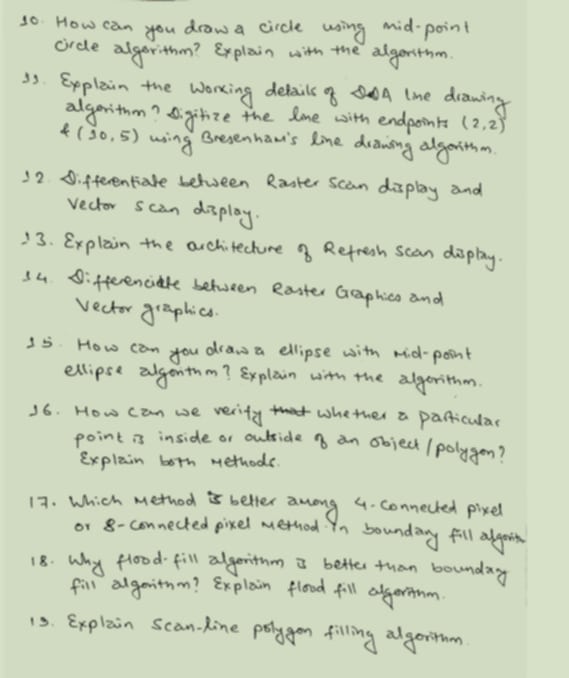 10. How can you draw a circle using mid-point
circle algorithm? Explain with the algorithm.
11. Explain the working details of DDA line drawing
algorithm? Digitize the line with endpoints (2,2)
& (10,5) using Bresenham's line drawing algorithm.
12. Differentiate between Raster Scan display and
Vector Scan display.
13. Explain the architecture of Refresh Scan display.
14. Differenciate between Raster Graphics and
Vector graphics.
15. How can you draw a ellipse with mid-point
ellipse algorithm? Explain with the algorithm.
16. How can we verify that whether a particular
point is inside or outside of an object/polygon?
Explain both methods.
17. Which method is better among 4-connected pixel
or 8-connected pixel method in boundary fill algorithm
18. Why flood-fill algorithm is better than boundary
fill algorithm? Explain flood fill algorithm.
19. Explain Scan-line polygon filling algorithm.